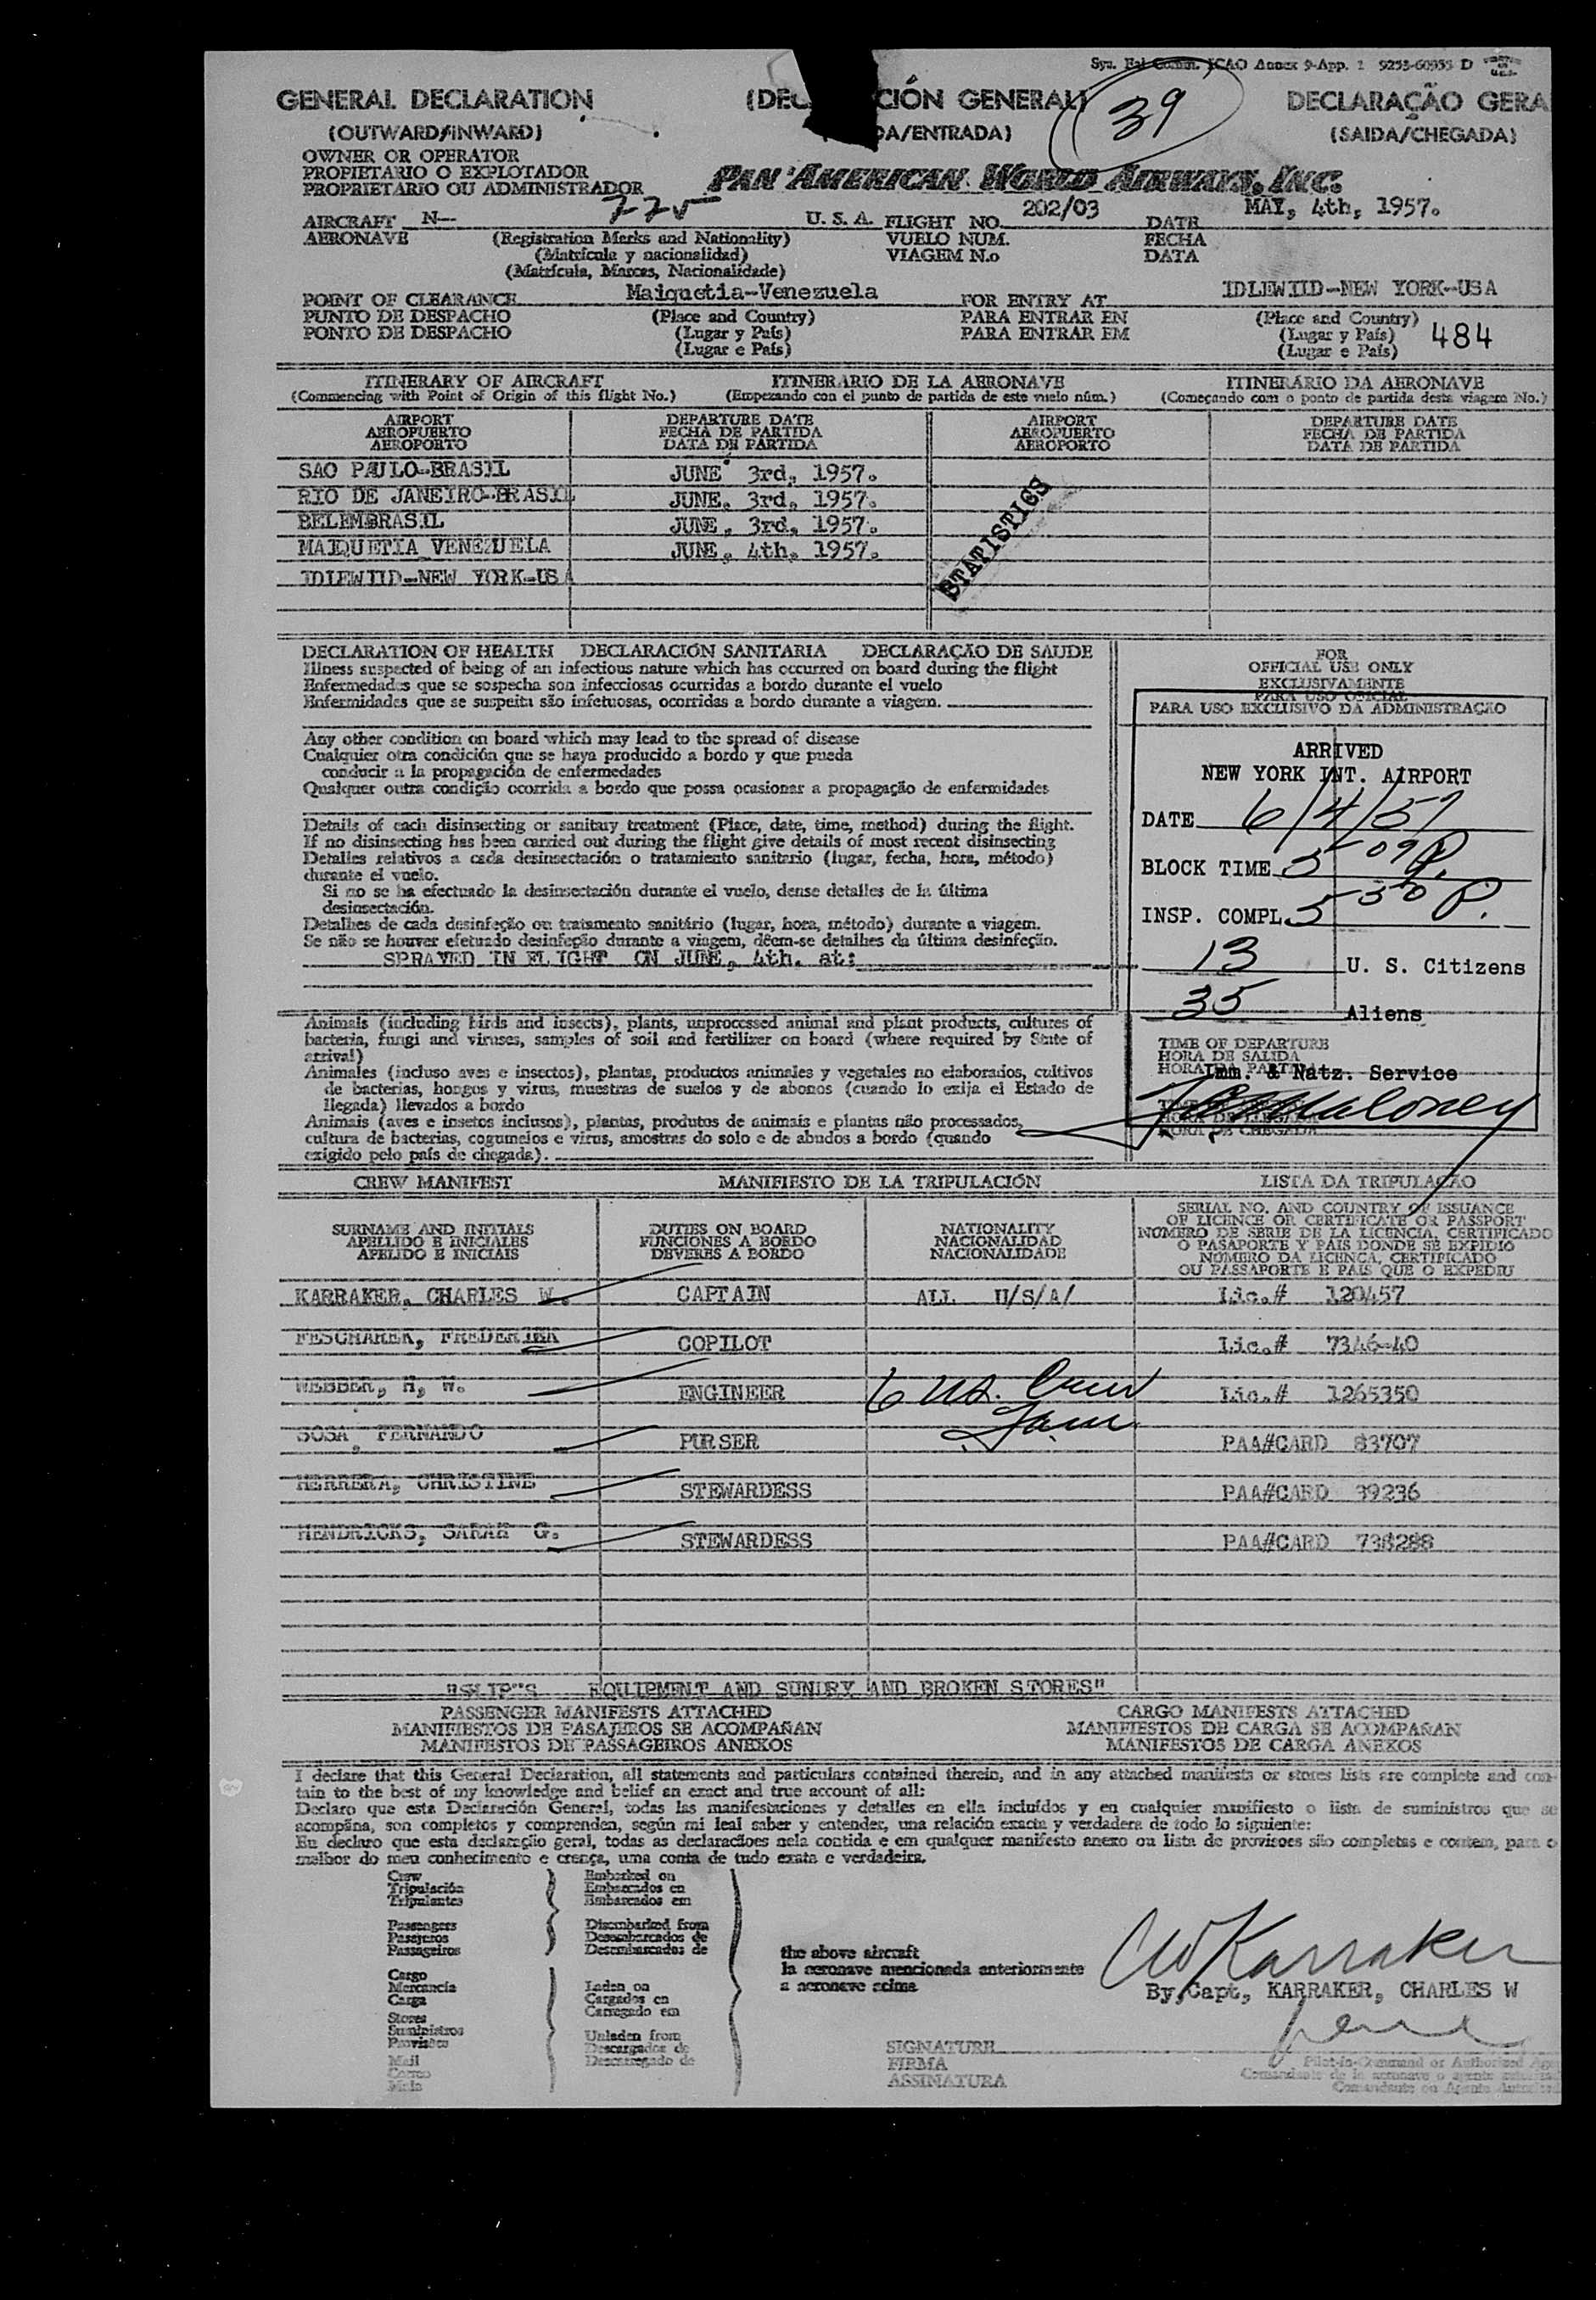 Sys. Fal Comm. ICAO Annex 9-App. 1 9255-60355 D
GENERAL DECLARATION (DEC CIÓN GENERAL) 39 DECLARAÇÃO GERA
(OUTWARD/INWARD) DA/ENTRADA) (SAIDA/CHEGADA)
OWNER OR OPERATOR
PROPIETARIO O EXPLOTADOR
PROPRIETARIO OU ADMINISTRADOR PAN AMERICAN WORLD AIRWAYS, INC.
AIRCRAFT N-- 775 U. S. A. FLIGHT NO. 202/03 DATE MAY, 4th, 1957.
AERONAVE (Registration Marks and Nationality) VUELO NUM. FECHA
(Matrícula y nacionalidad) VIAGEM N.o DATA
(Matrícula, Marcas, Nacionalidade)
POINT OF CLEARANCE Maiquetia-Venezuela FOR ENTRY AT IDLEWIID-NEW YORK-USA
PUNTO DE DESPACHO (Place and Country) PARA ENTRAR EN (Place and Country)
PONTO DE DESPACHO (Lugar y País) PARA ENTRAR EM (Lugar y País) 484
(Lugar e País) (Lugar e País)
ITINERARY OF AIRCRAFT ITINERARIO DE LA AERONAVE ITINERÁRIO DA AERONAVE
(Commencing with Point of Origin of this flight No.) (Empezando con el punto de partida de este vuelo núm.) (Começando com o ponto de partida desta viagem No.)
AIRPORT DEPARTURE DATE AIRPORT DEPARTURE DATE
AEROPUERTO FECHA DE PARTIDA AEROPUERTO FECHA DE PARTIDA
AEROPORTO DATA DE PARTIDA AEROPORTO DATA DE PARTIDA
SAO PAULO-BRASIL JUNE 3rd, 1957.
RIO DE JANEIRO-BRASIL JUNE. 3rd, 1957.
BELEMBRASIL JUNE, 3rd, 1957.
MAIQUETIA VENEZUELA JUNE, 4th, 1957.
IDLEWIID-NEW YORK-USA
STATISTICS
DECLARATION OF HEALTH DECLARACIÓN SANITARIA DECLARAÇÃO DE SAUDE
Illness suspected of being of an infectious nature which has occurred on board during the flight
Enfermedades que se sospecha son infecciosas ocurridas a bordo durante el vuelo
Enfermidades que se suspeita são infetuosas, ocorridas a bordo durante a viagem.
Any other condition on board which may lead to the spread of disease
Cualquier otra condición que se haya producido a bordo y que pueda
conducir a la propagación de enfermedades
Qualquer outra condição ocorrida a bordo que possa ocasionar a propagação de enfermidades
Details of each disinsecting or sanitary treatment (Place, date, time, method) during the flight.
If no disinsecting has been carried out during the flight give details of most recent disinsecting
Detalles relativos a cada desinsectación o tratamiento sanitario (lugar, fecha, hora, método)
durante el vuelo.
Si no se ha efectuado la desinsectación durante el vuelo, dense detalles de la última
desinsectación.
Detalhes de cada desinfeção ou tratamento sanitário (lugar, hora, método) durante a viagem.
Se não se houver efetuado desinfeção durante a viagem, dêem-se detalhes da última desinfeção.
SPRAYED IN FLIGHT ON JUNE, 4th. at:
Animals (including birds and insects), plants, unprocessed animal and plant products, cultures of
bacteria, fungi and viruses, samples of soil and fertilizer on board (where required by State of
arrival)
Animales (incluso aves e insectos), plantas, productos animales y vegetales no elaborados, cultivos
de bacterias, hongos y virus, muestras de suelos y de abonos (cuando lo exija el Estado de
llegada) llevados a bordo
Animais (aves e insetos inclusos), plantas, produtos de animais e plantas não processados,
cultura de bacterias, cogumelos e virus, amostras do solo e de abudos a bordo (quando
exigido pelo país de chegada).
FOR
OFFICIAL USE ONLY
EXCLUSIVAMENTE
PARA USO OFICIAL
PARA USO EXCLUSIVO DA ADMINISTRAÇÃO
ARRIVED
NEW YORK INT. AIRPORT
DATE 6/4/57
BLOCK TIME 5 09 P.
INSP. COMPL. 5 50 P.
13 U. S. Citizens
35 Aliens
TIME OF DEPARTURE
HORA DE SALIDA
HORA DA PARTIDA
Imm. & Natz. Service
HORA DE LLEGADA
HORA DE CHEGADA
CREW MANIFEST MANIFIESTO DE LA TRIPULACIÓN LISTA DA TRIPULAÇÃO
SURNAME AND INITIALS DUTIES ON BOARD NATIONALITY SERIAL NO. AND COUNTRY OF ISSUANCE
APELLIDO E INICIALES FUNCIONES A BORDO NACIONALIDAD OF LICENCE OR CERTIFICATE OR PASSPORT
APELIDO E INICIAIS DEVERES A BORDO NACIONALIDADE NÚMERO DE SERIE DE LA LICENCIA, CERTIFICADO
O PASAPORTE Y PAIS DONDE SE EXPIDIÓ
NÚMERO DA LICENCA, CERTIFICADO
OU PASSAPORTE E PAIS QUE O EXPEDIU
KARRAKER, CHARLES W. CAPTAIN ALL U/S/A/ Lic.# 120457
PESCHAREK, FREDERIKA COPILOT Lic.# 7346-40
WEBBER, H, W. ENGINEER 6 US. Crew Lic.# 1265350
SOSA, FERNANDO PURSER PAA#CARD 83707
HERRERA, CHRISTINE STEWARDESS PAA#CARD 39236
HENDRICKS, SARAH G. STEWARDESS PAA#CARD 738288
"SLIP"S EQUIPMENT AND SUNDRY AND BROKEN STORES"
PASSENGER MANIFESTS ATTACHED CARGO MANIFESTS ATTACHED
MANIFIESTOS DE PASAJEROS SE ACOMPAÑAN MANIFIESTOS DE CARGA SE ACOMPAÑAN
MANIFESTOS DE PASSAGEIROS ANEXOS MANIFESTOS DE CARGA ANEXOS
I declare that this General Declaration, all statements and particulars contained therein, and in any attached manifests or stores lists are complete and con-
tain to the best of my knowledge and belief an exact and true account of all:
Declaro que esta Declaración General, todas las manifestaciones y detalles en ella incluídos y en cualquier manifiesto o lista de suministros que se
acompãna, son completos y comprenden, según mi leal saber y entender, una relación exacta y verdadera de todo lo siguiente:
Eu declaro que esta declaração geral, todas as declaracões nela contida e em qualquer manifesto anexo ou lista de provisoes são completas e contem, para o
melhor do meu conhecimento e crença, uma conta de tudo exata e verdadeira.
Crew Embarked on
Tripulación Embarcados en
Tripulantes Embarcados em
Passengers Disembarked from
Pasajeros Desembarcados de
Passageiros Desembarcados de
the above aircraft
la aeronave mencionada anteriormente
a aeronave acima
Cargo Laden on
Mercancia Cargados en
Carga Carregado em
Stores
Suministros Unladen from
Provisões Descargados de
Mail Descarregado de
Correo
Mala
CW Karraker
By, Capt, KARRAKER, CHARLES W
SIGNATURE
FIRMA Pilot-in-Command or Authorized Age
ASSINATURA Comandante de la aeronave o agente autorizad
Comandante ou Agente Autoriza